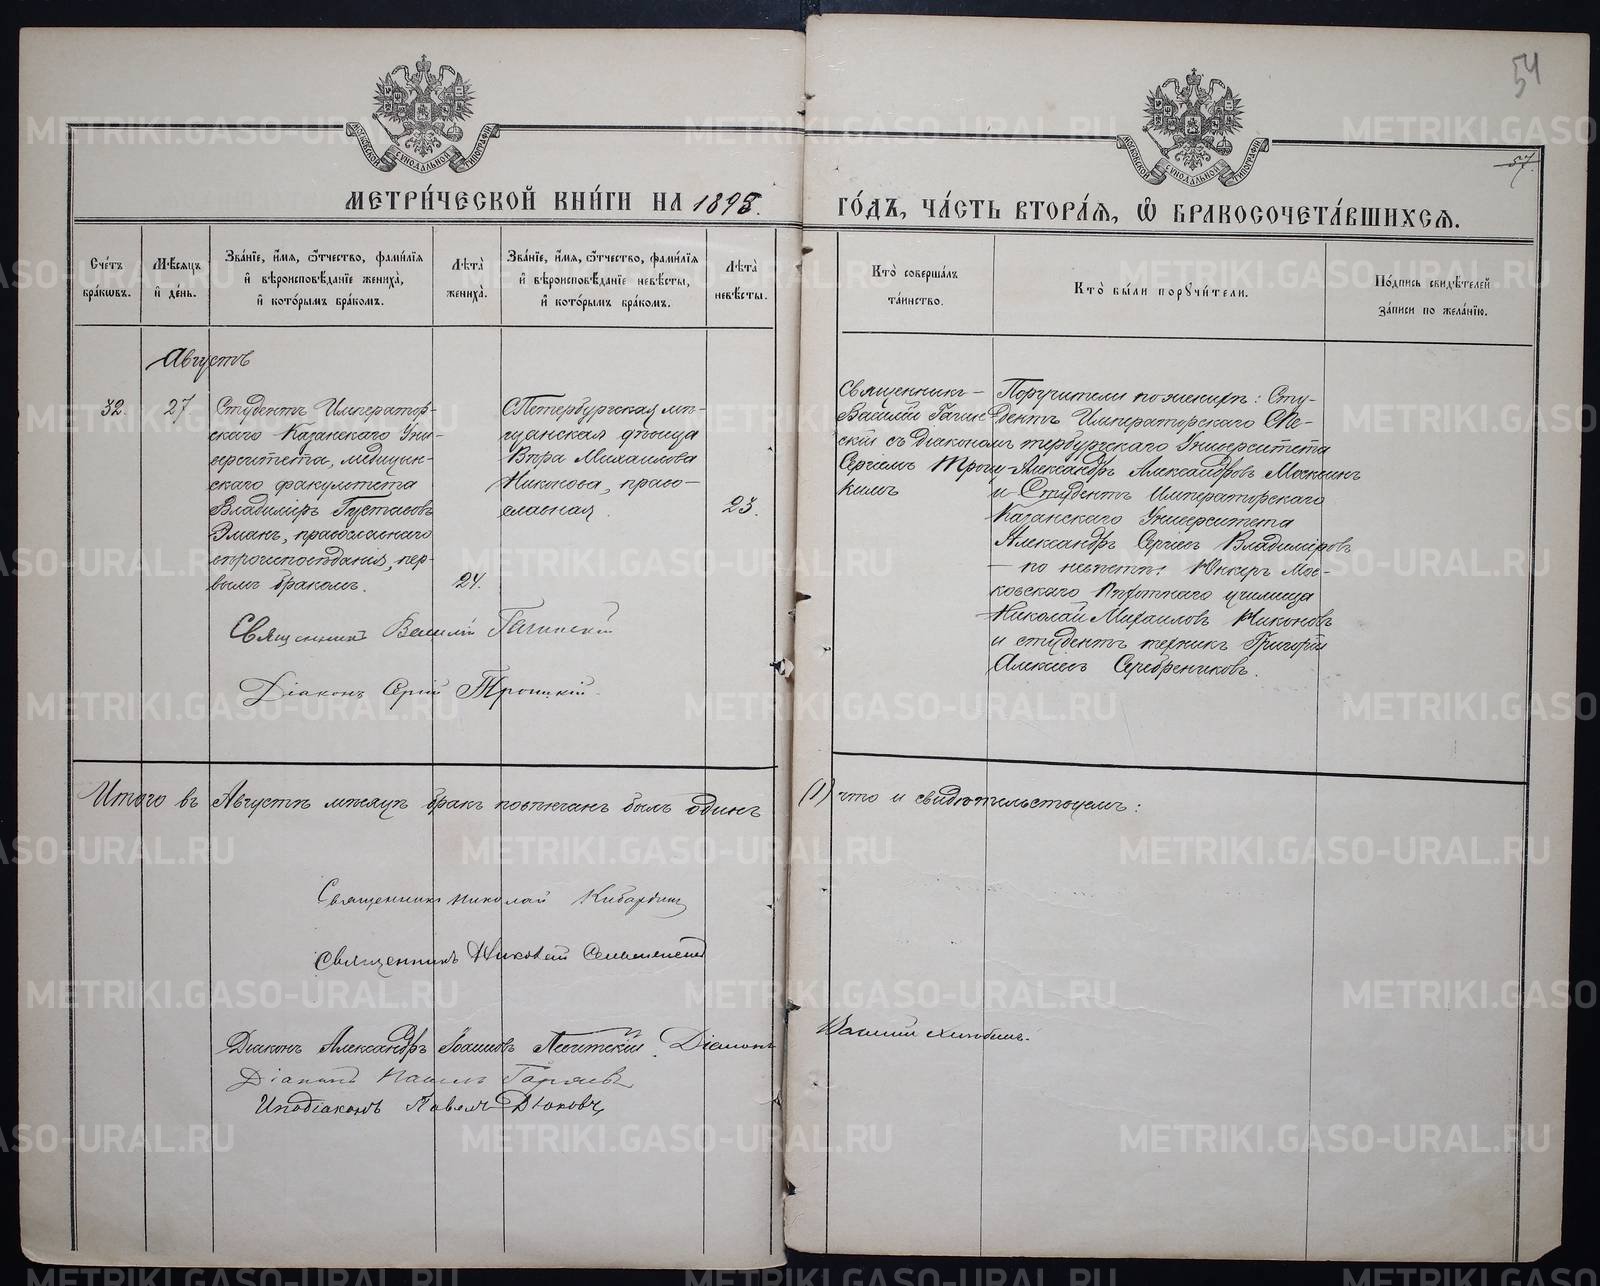 54
57.
МОСКОВСКОЙ СѴНОДАЛЬНОЙ ТИПОГРАФІИ
МОСКОВСКОЙ СѴНОДАЛЬНОЙ ТИПОГРАФІИ
МЕТРИ́ЧЕСКОЙ КНИ́ГИ НА 1898.
ГО́ДЪ, ЧА́СТЬ ВТОРА́Я, Ѡ БРАКОСОЧЕТА́ВШИХСЯ.
Сче́тъ бра́ковъ.
Мѣ́сяцъ и де́нь.
Зва́нїе, и́мя, ѻ́тчество, фами́лїя и вѣроисповѣ́данїе жениха́, и кото́рымъ бра́комъ.
Лѣта̀ жениха̀.
Зва́нїе, и́мя, ѻ́тчество, фами́лїя и вѣроисповѣ́данїе невѣ́сты, и кото́рымъ бра́комъ.
Лѣта̀ невѣ́сты.
Кто̀ соверша́лъ та́инство.
Кто̀ бы́ли порꙋчи́тели.
По́дпись свидѣ́телей за́писи по жела́нїю.
Августъ
32.
27
Студентъ Император-
скаго Казанскаго Уни-
верситета, медицин-
скаго факультета
Владиміръ Густавовъ
Эманъ, православнаго
вѣроисповѣданія, пер-
вымъ бракомъ.
24.
СПетербургская мѣ-
щанская дѣвица
Вѣра Михаилова
Никонова, право-
славная.
23.
Священникъ
Василій Гагин-
скій съ діакономъ
Сергіемъ Троиц-
кимъ
Поручители по женихѣ: Сту-
дентъ Императорскаго СПе-
тербургскаго Университета
Александръ Александровъ Москвинъ
и Студентъ Императорскаго
Казанскаго Университета
Александръ Сергіевъ Владиміровъ
— по невѣстѣ: Юнкеръ Мос-
ковскаго Пѣхотнаго училища
Николай Михаиловъ Никоновъ
и студентъ техникъ Григорій
Алексіевъ Серебрениковъ.
Священникъ Василій Гагинскій
Діаконъ Сергій Троицкій.
Итого въ Августѣ мѣсяцѣ бракъ повѣнчанъ былъ одинъ
(1) что и свидѣтельствуемъ:
Священникъ Николай Кибардинъ
Священникъ Николай
Діаконъ Александръ Іоанновъ Діаконъ
Василій
Діаконъ Павелъ
Иподіаконъ Павелъ Дюковъ
METRIKI.GASO-URAL.RU